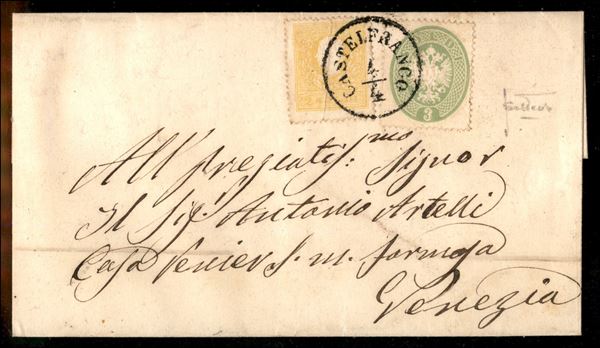 CASTELFRANCO
3
All pregiatis: mo Signor
Il Sigr Antonio Artelli
Casa Venier S. M. formosa
Venezia